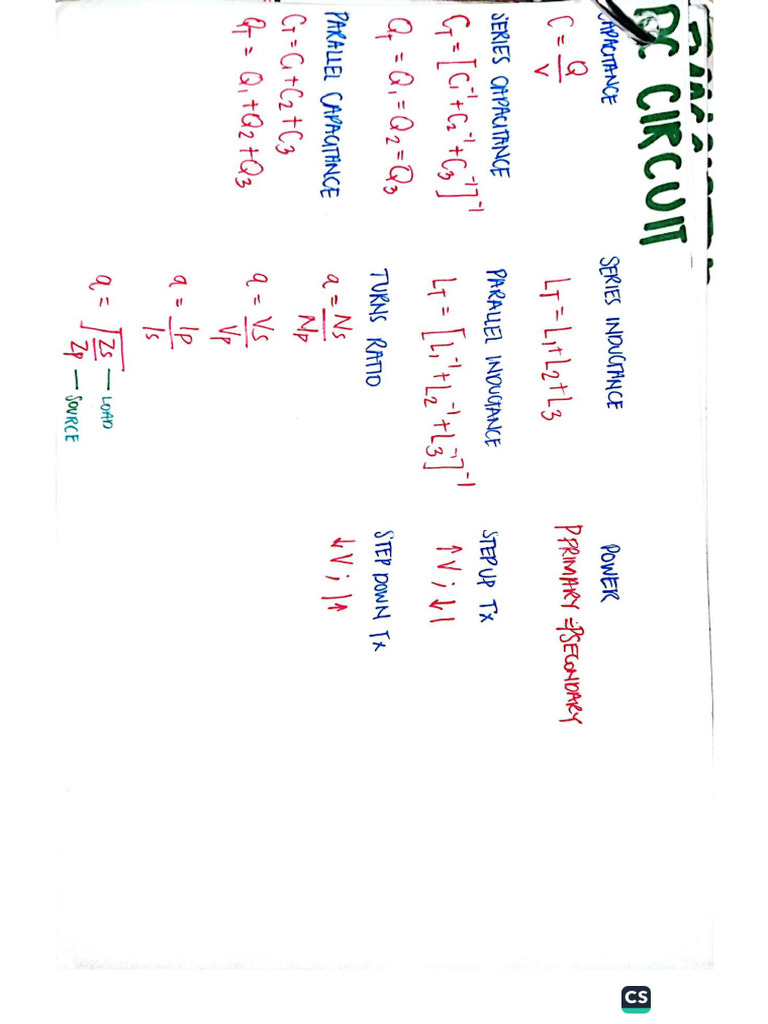 DC CIRCUIT
CAPACITANCE
C = Q/V
SERIES CAPACITANCE
CT = [C1⁻¹ + C2⁻¹ + C3⁻¹]⁻¹
QT = Q1 = Q2 = Q3
PARALLEL CAPACITANCE
CT = C1 + C2 + C3
QT = Q1 + Q2 + Q3
SERIES INDUCTANCE
LT = L1 + L2 + L3
PARALLEL INDUCTANCE
LT = [L1⁻¹ + L2⁻¹ + L3⁻¹]⁻¹
TURNS RATIO
a = Ns/Np
a = Vs/Vp
a = Ip/Is
a = √(Zs/Zp) — LOAD
— SOURCE
POWER
PPRIMARY = PSECONDARY
STEP UP Tx
↑V ; ↓I
STEP DOWN Tx
↓V ; I↑
CS